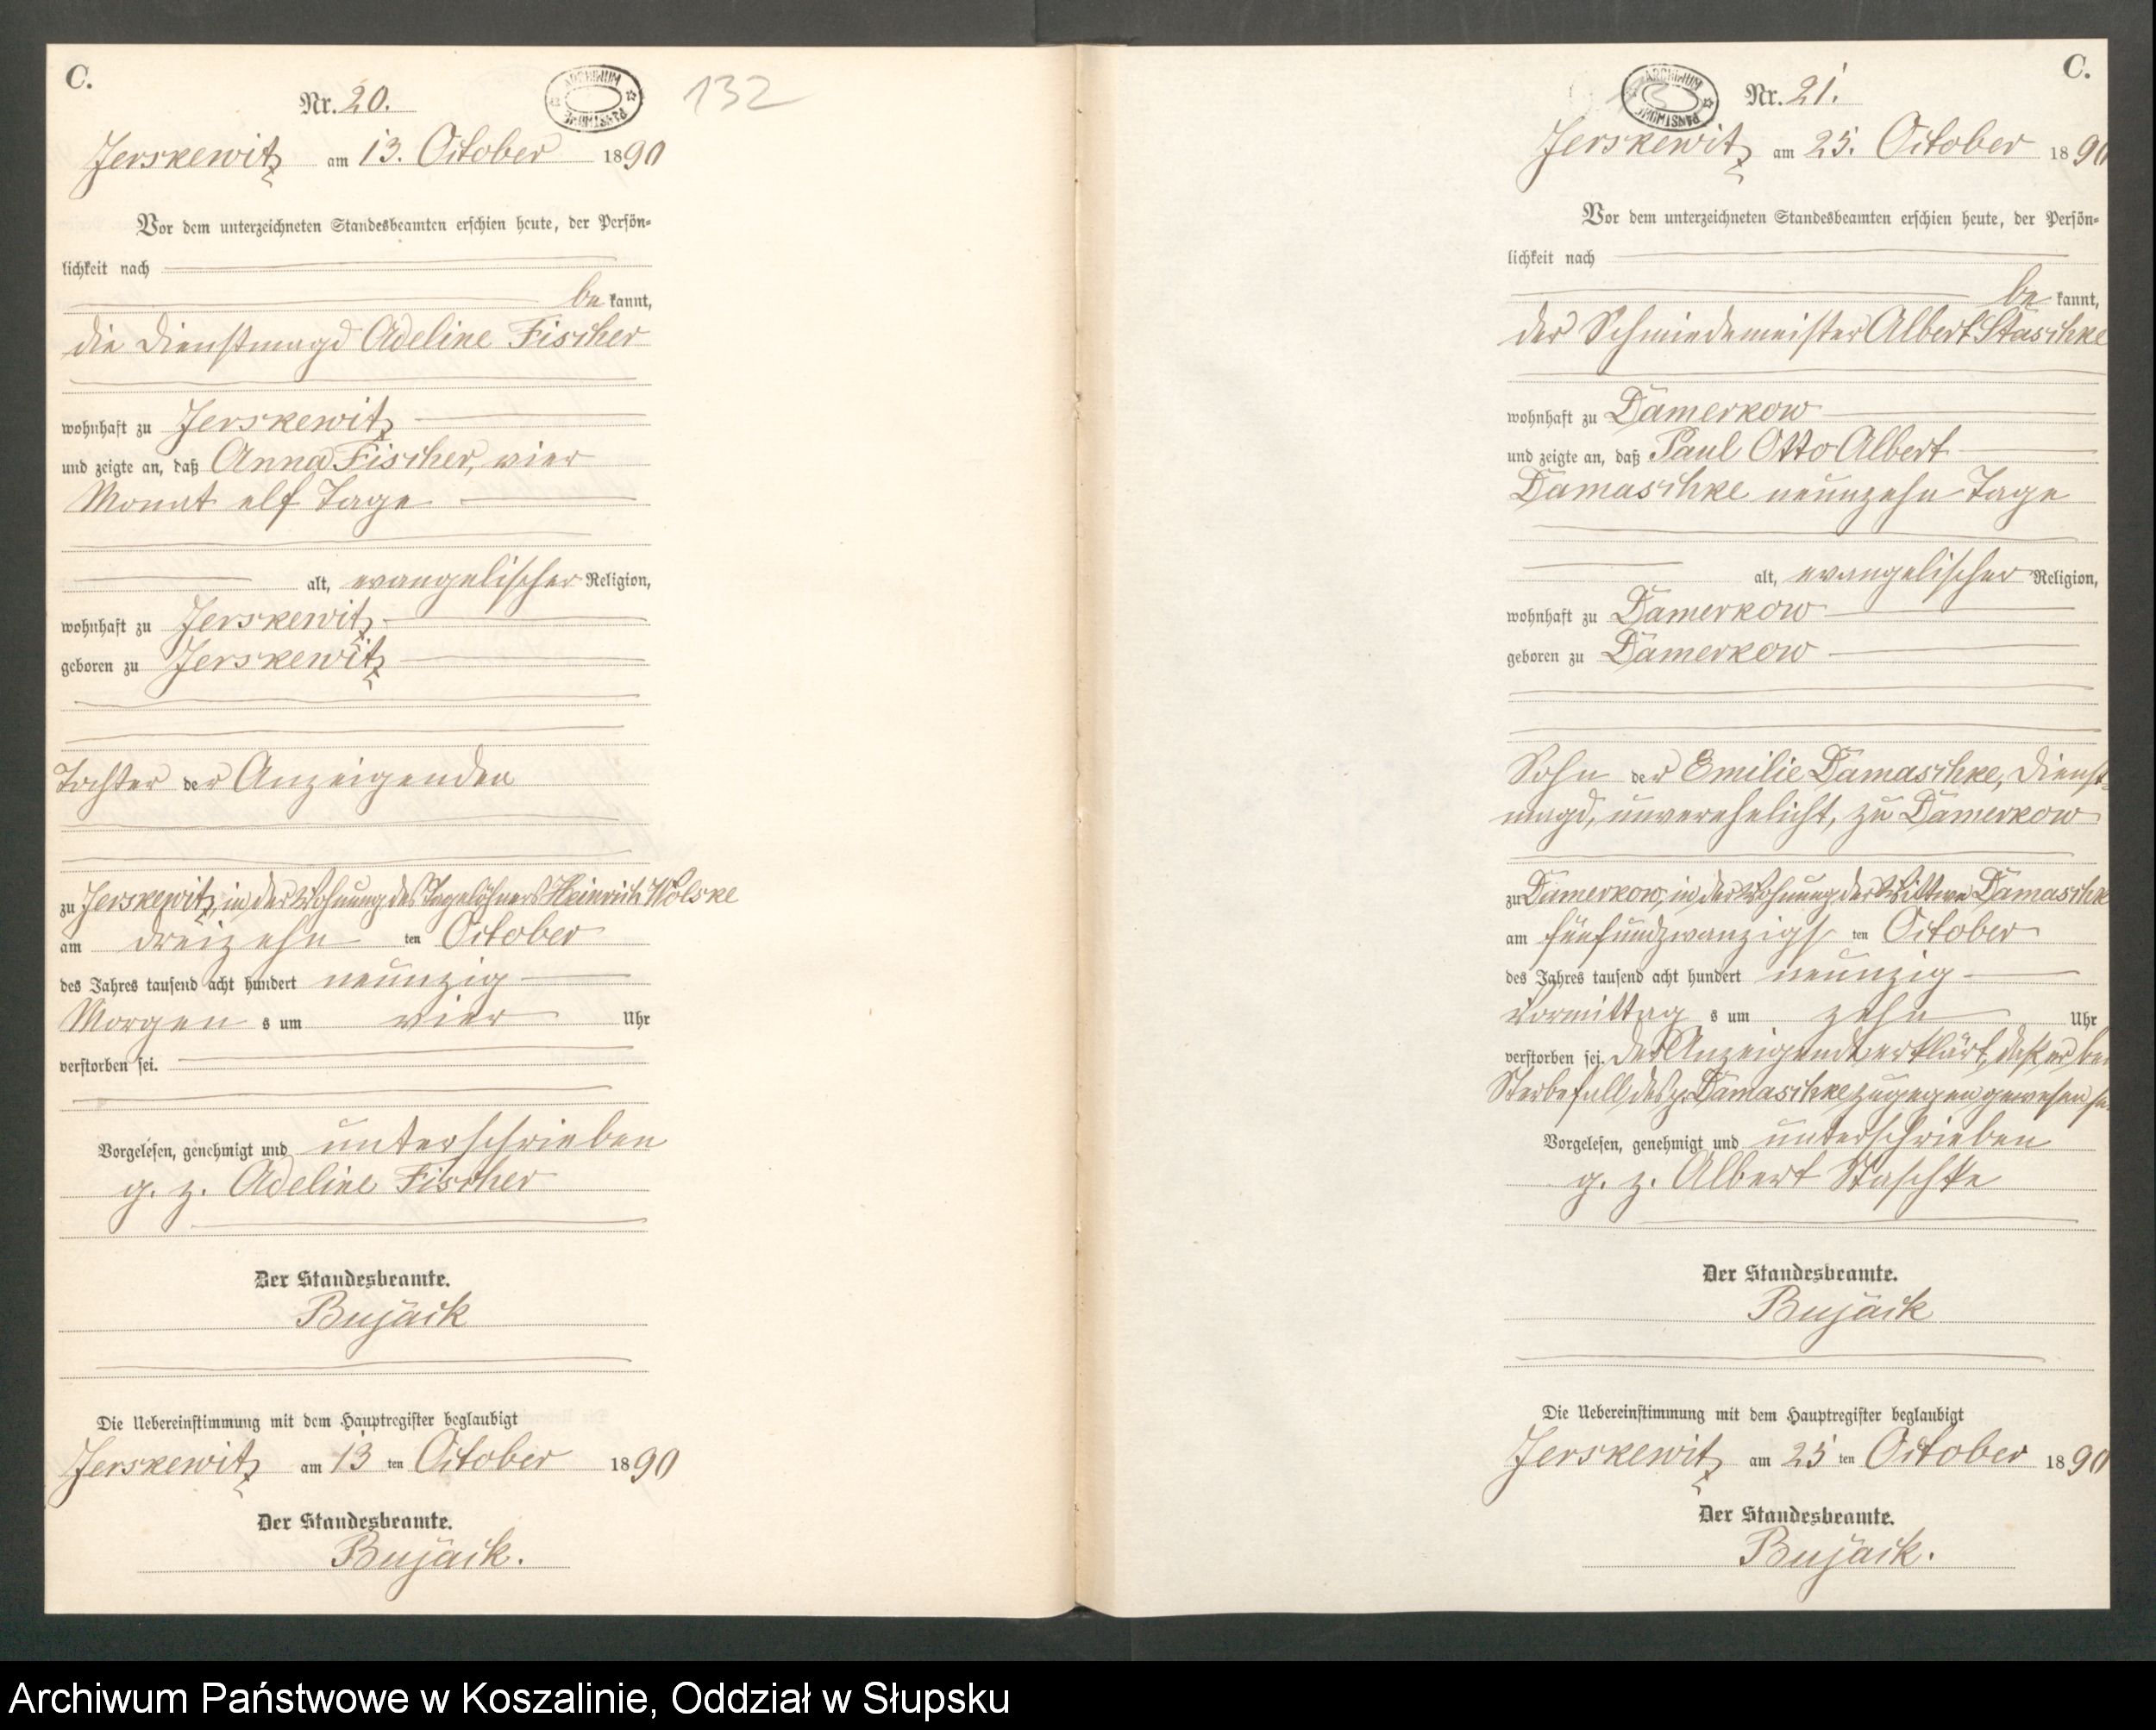 C.
Nr. 20.
ARCHIWUM PAŃSTWOWE
132
Jerskewitz am 13. October 1890
Vor dem unterzeichneten Standesbeamten erschien heute, der Persön-
lichkeit nach
be kannt,
die Dienstmagd Adeline Fischer
wohnhaft zu Jerskewitz
und zeigte an, daß Anna Fischer, vier
Monat elf Tage
alt, evangelischer Religion,
wohnhaft zu Jerskewitz
geboren zu Jerskewitz
Tochter der Anzeigenden
zu Jerskewitz, in der Wohnung des Tagelöhners Heinrich Wolske
am dreizehn ten October
des Jahres tausend acht hundert neunzig
Morgen s um vier Uhr
verstorben sei.
Vorgelesen, genehmigt und unterschrieben
g. z. Adeline Fischer
Der Standesbeamte.
Bujack
Die Uebereinstimmung mit dem Hauptregister beglaubigt
Jerskewitz am 13 ten October 1890
Der Standesbeamte.
Bujack.
C.
ARCHIWUM PAŃSTWOWE
Nr. 21.
Jerskewitz am 25. October 1890
Vor dem unterzeichneten Standesbeamten erschien heute, der Persön-
lichkeit nach
be kannt,
der Schmiedemeister Albert Staschke
wohnhaft zu Damerkow
und zeigte an, daß Paul Otto Albert
Damaschke neunzehn Tage
alt, evangelischer Religion,
wohnhaft zu Damerkow
geboren zu Damerkow
Sohn der Emilie Damaschke, Dienst-
magd, unverehelicht, zu Damerkow
zu Damerkow, in der Wohnung der Wittwe Damaschke
am fünfundzwanzigs ten October
des Jahres tausend acht hundert neunzig
Vormittag s um zehn Uhr
verstorben sei. Der Anzeigende erklärt, daß er bei
Sterbefall des p. Damaschke zugegen gewesen sei
Vorgelesen, genehmigt und unterschrieben
g. z. Albert Staschke
Der Standesbeamte.
Bujack
Die Uebereinstimmung mit dem Hauptregister beglaubigt
Jerskewitz am 25 ten October 1890
Der Standesbeamte.
Bujack.
Archiwum Państwowe w Koszalinie, Oddział w Słupsku